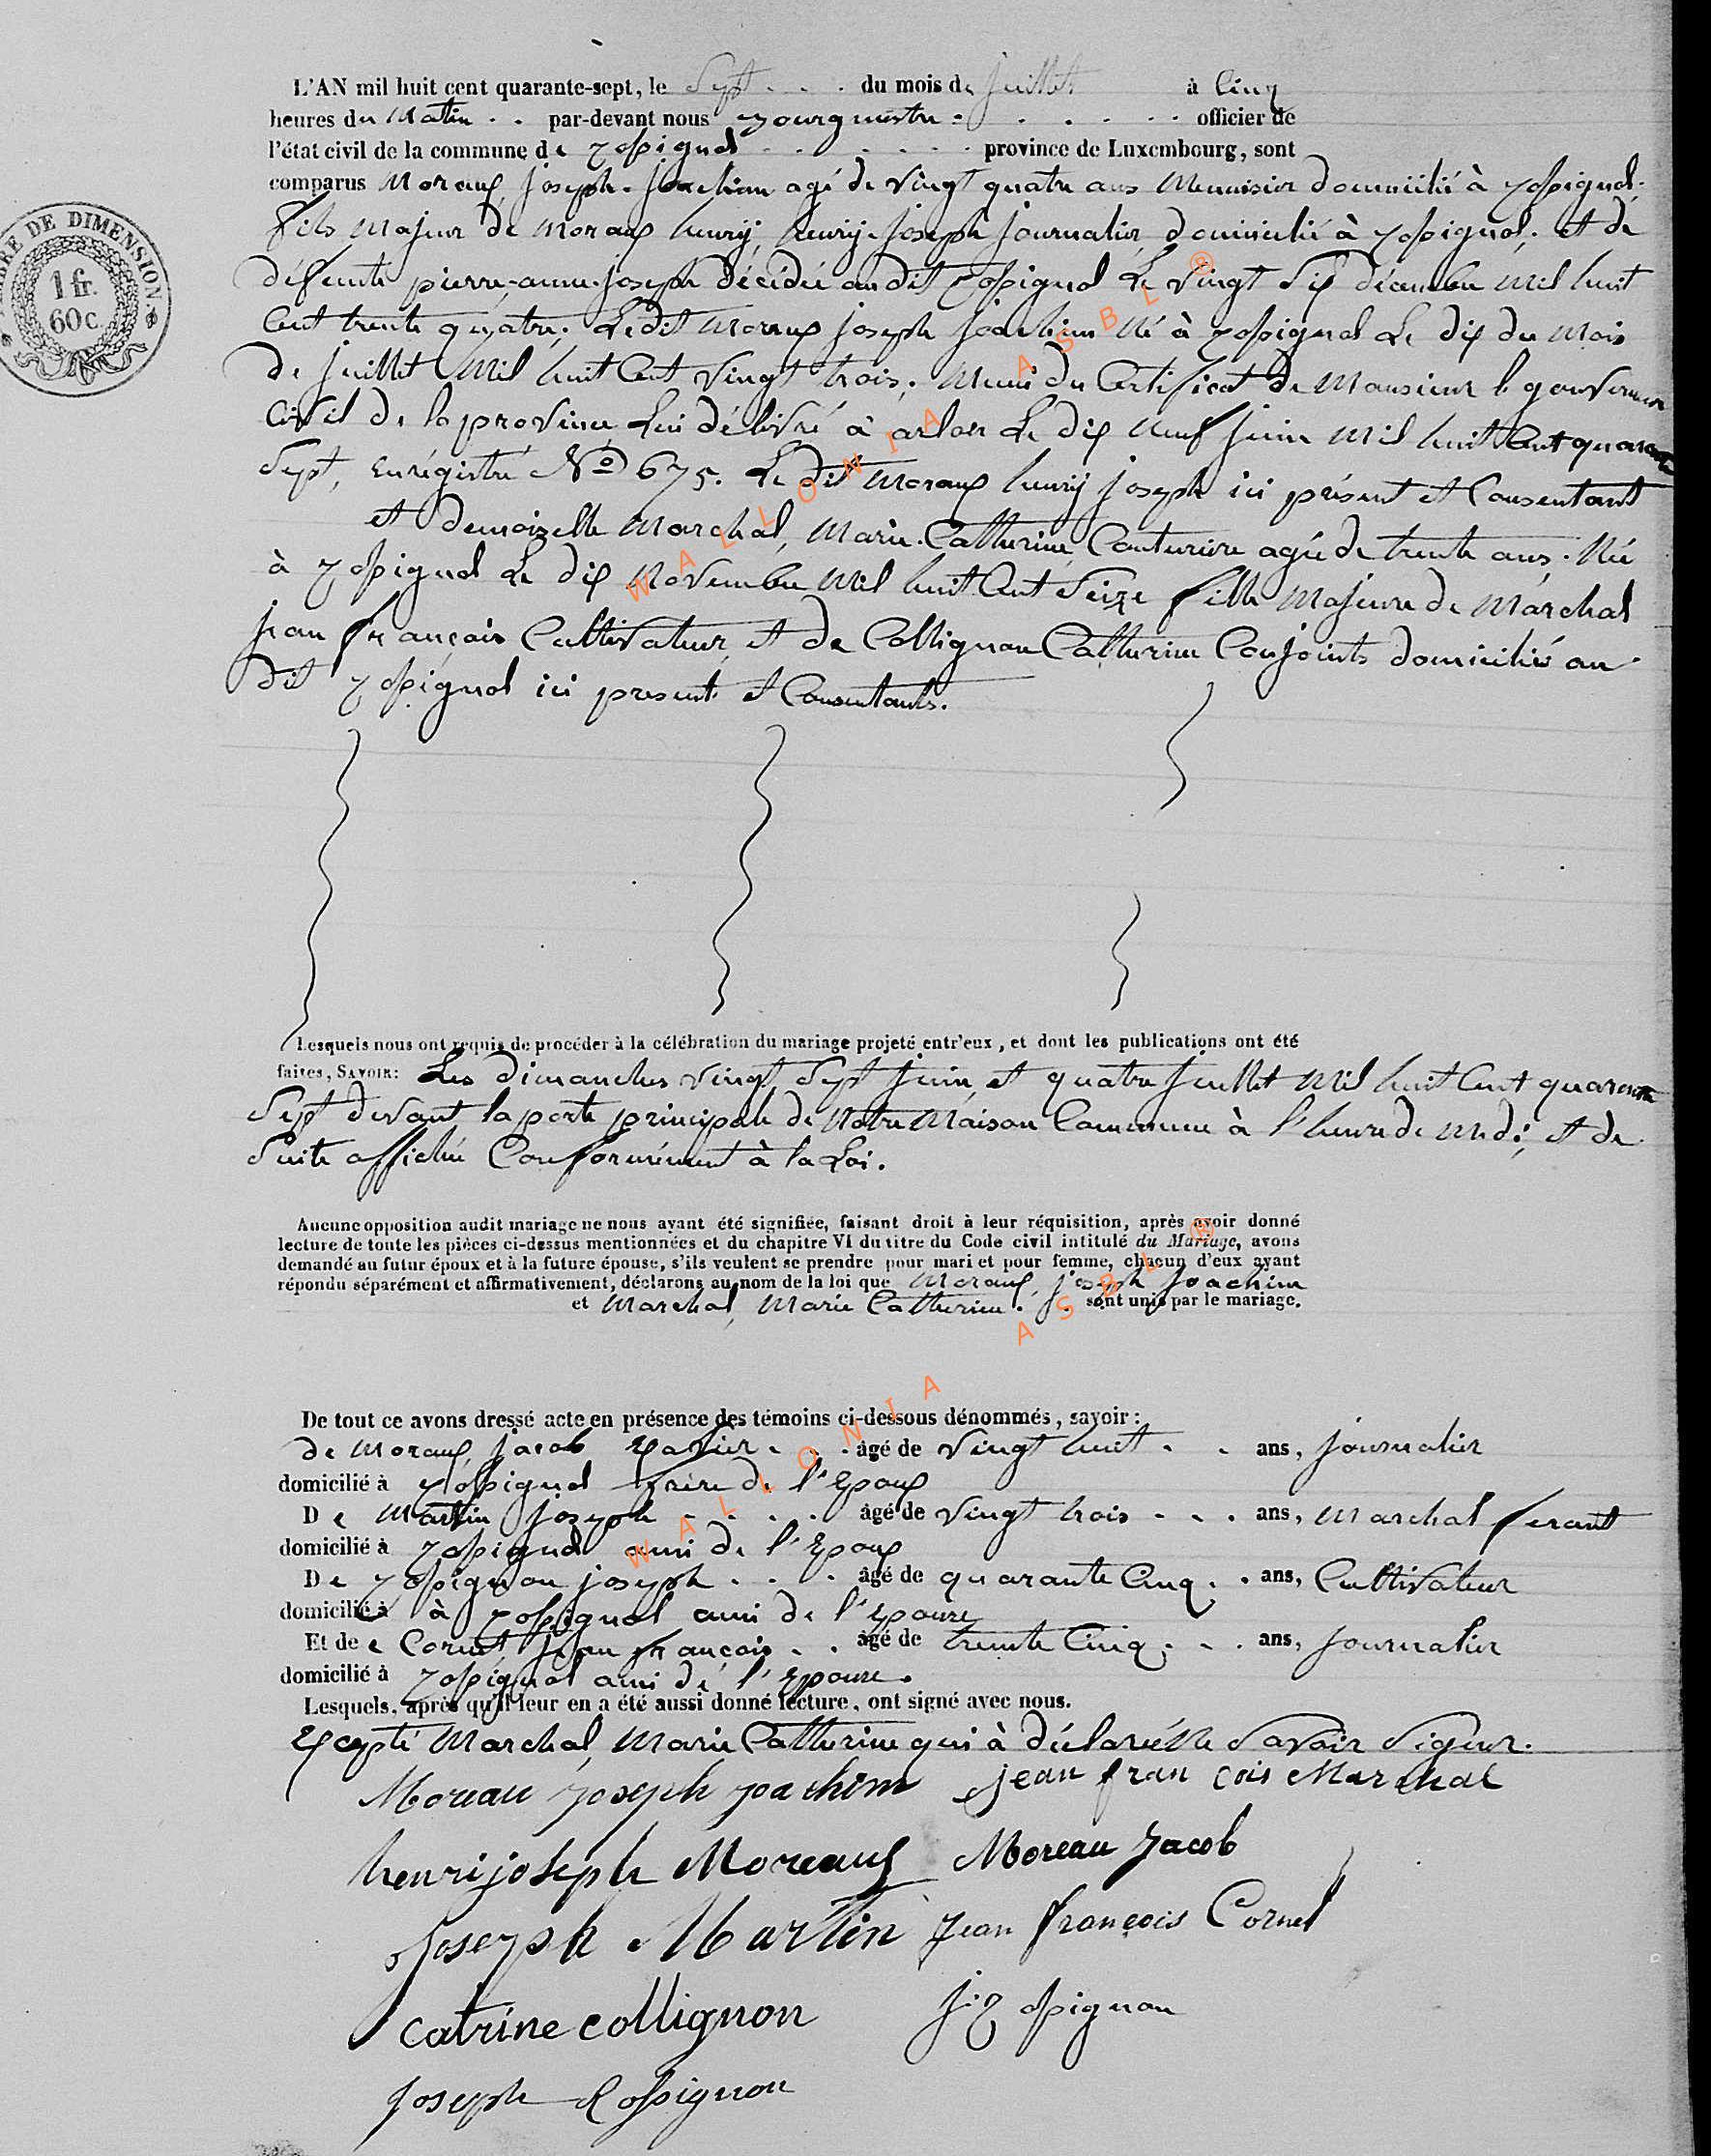 TIMBRE DE DIMENSION.
1 fr.
60 c.
L'AN mil huit cent quarante-sept, le Sept . . . du mois de juillet à Cinq
heures du Matin . . par-devant nous Bourgmestre . . . . . . officier de
l'état civil de la commune de Rossignol . . . . . province de Luxembourg, sont
comparus Moraux joseph-joachim agé de vingt quatre ans Menuisier domicilié à Rossignol.
fils majeur de Moraux henry, henry-joseph journalier domicilié à Rossignol, et de
défunte pierre-anne-joseph décédée au dit Rossignol Le vingt Six décembre Mil huit
Cent trente quatre. Ledit Moraux joseph joachim Né à Rossignol Le dix du Mois
de juillet Mil huit Cent vingt trois. Muni du Certificat de Monsieur le gouverneur
Civil de la province Lui délivré à arlon Le dix neuf juin Mil huit Cent quarante
Sept, enrégistré Nº 675. Le dit Moraux henry joseph ici présent et Consentant
et demoizelle Marchal, Marie-Catherine Couturière agée de trente ans. Née
à Rossignol Le dix Novembre Mil huit Cent Seize fille Majeure de Marchal
jean françois Cultivateur et de Collignon Catherine Conjoints domiciliés au
dit Rossignol ici present et Consentants.
Lesquels nous ont requis de procéder à la célébration du mariage projeté entr'eux, et dont les publications ont été
faites, SAVOIR: Les dimanches vingt Sept juin et quatre juillet Mil huit Cent quarante
Sept devant la porte principale de Notre Maison Commune à l'heure de Midi, et de
Suite affiché Conformément à la Loi.
Aucune opposition audit mariage ne nous ayant été signifiée, faisant droit à leur réquisition, après avoir donné
lecture de toute les pièces ci-dessus mentionnées et du chapitre VI du titre du Code civil intitulé du Mariage, avons
demandé au futur époux et à la future épouse, s'ils veulent se prendre pour mari et pour femme, chacun d'eux ayant
répondu séparément et affirmativement, déclarons au nom de la loi que Moraux, joseph joachim
et Marchal, Marie Catherine. sont unis par le mariage.
De tout ce avons dressé acte en présence des témoins ci-dessous dénommés, savoir:
de Moraux, jacob Xavier . . . âgé de vingt huit . . ans, journalier
domicilié à Rossignol frère de l'Epoux
De Martin joseph . . . . âgé de vingt trois . . . ans, Marchal ferant
domicilié à Rossignol ami de l'Epoux
De Rossignon joseph . . . âgé de quarante Cinq . . ans, Cultivateur
domicilié à à Rossignol ami de l'Epouse
Et de Cornet jean françois . . âgé de trente Cinq . . . ans, journalier
domicilié à Rossignol ami de l'Epouse.
Lesquels, après qu'il leur en a été aussi donné lecture, ont signé avec nous.
Excepté Marchal, Marie Catherine qui à déclaré Ne Savoir Signer.
Moreau joseph joachim jean fran cois Marchal
henri joseph Moreaux Moreau Jacob
joseph Martin Jean françois Cornet
catrine collignon j. Rossignon
joseph Rossignon
WALLONIA ASBL ®
WALLONIA ASBL ®